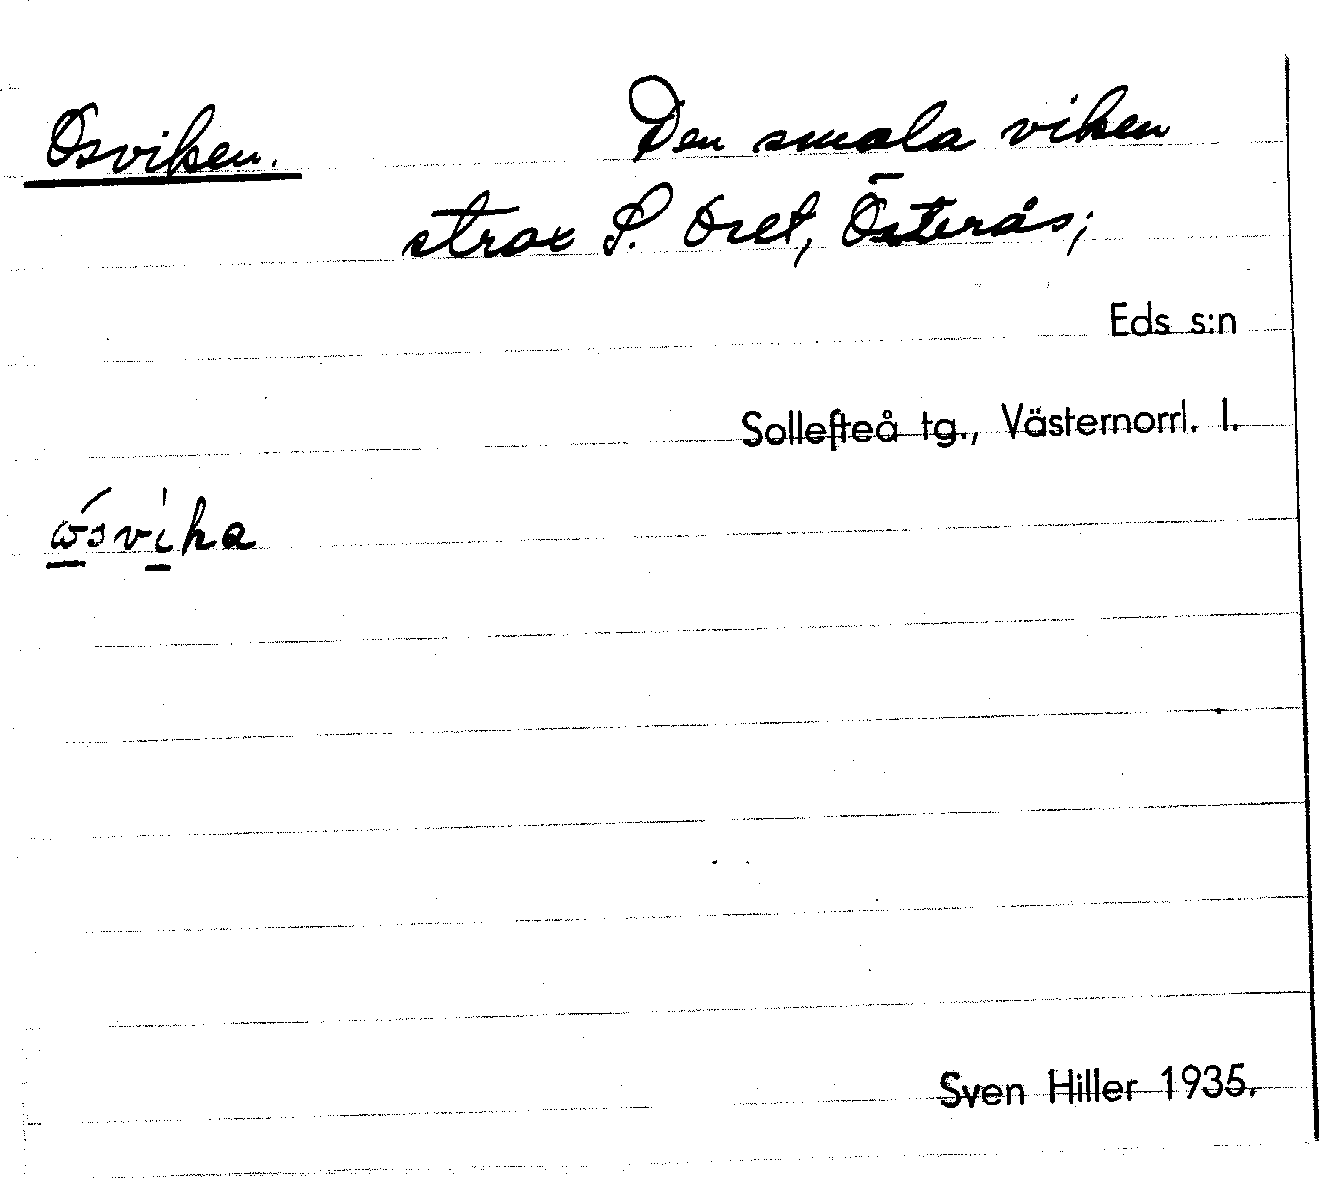 Osviken. Den smala viken
strax S. Oret, Österås;
Eds s:n
Sollefteå tg., Västernorrl. l.
ώsvíka
Sven Hiller 1935.